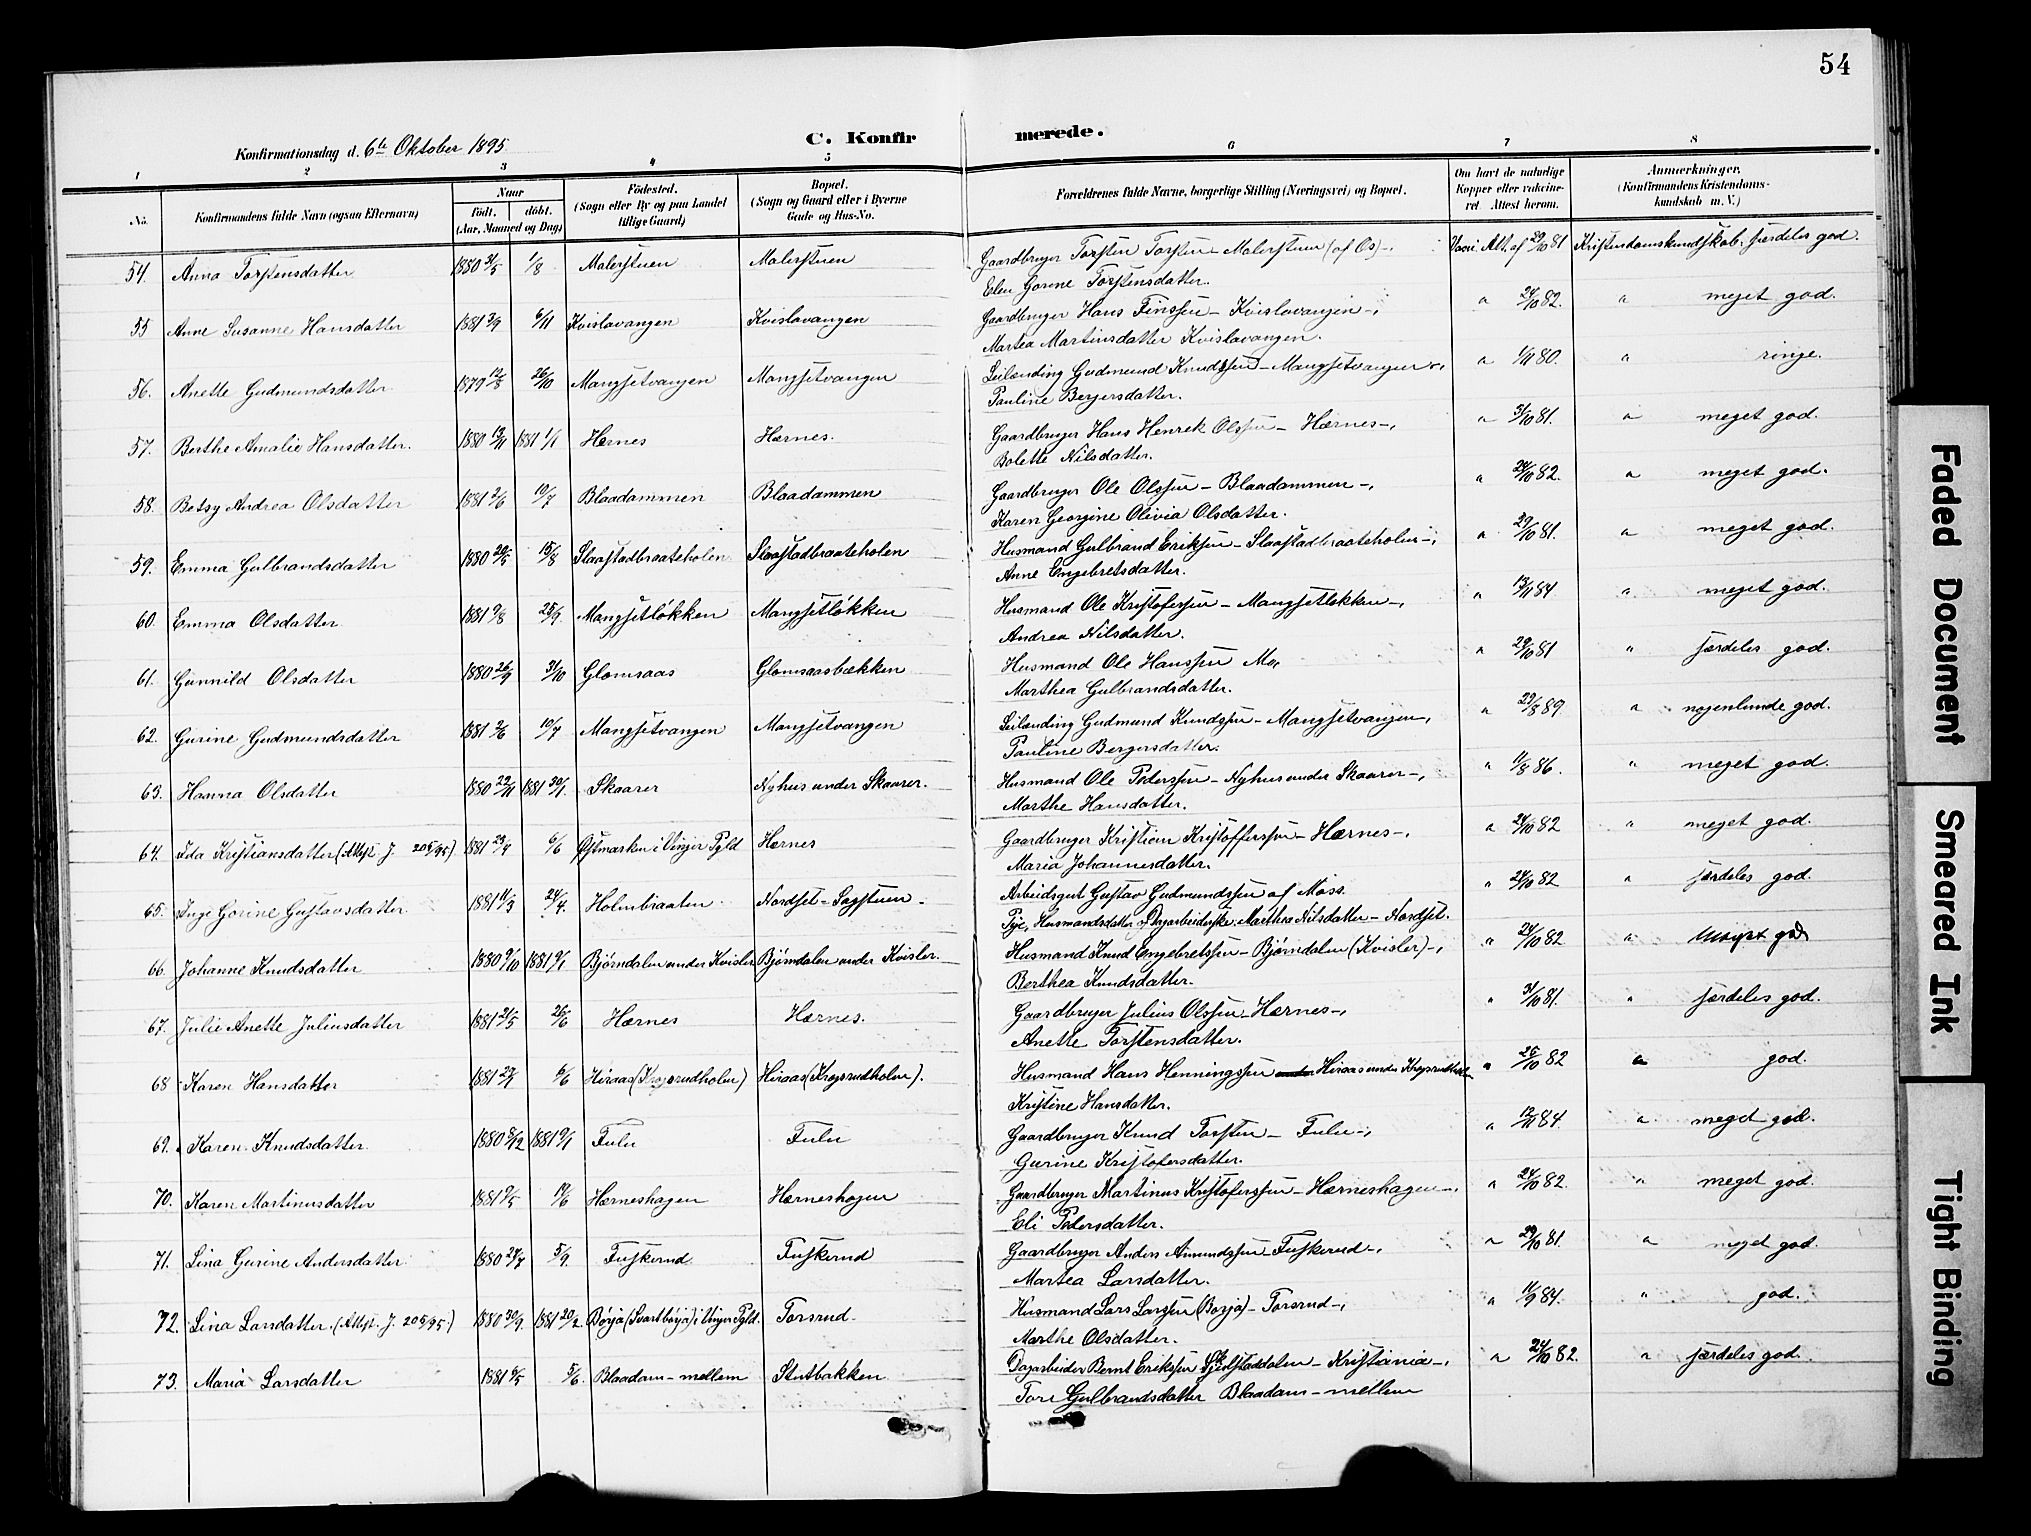 54
C. Konfirmerede.
Konfirmationsdag d. 6te Oktober 1895
1 2 3 4 5 6 7 8
No.
Konfirmandens fulde Navn (ogsaa Efternavn)
Naar
født. døbt.
(Aar, Maaned og Dag)
Fødested.
(Sogn eller By og paa Landet
tillige Gaard)
Bopæl.
(Sogn og Gaard eller i Byerne
Gade og Hus-No.
Forældrenes fulde Navne, borgerlige Stilling (Næringsvei) og Bopæl.
Om havt de naturlige
Kopper eller vakcine-
ret. Attest herom.
Anmærkninger.
(Konfirmandens Kristendoms-
kundskab m. V.)
54. Anna Torstensdatter 1880 31/5 1/8 Malerstuen Malerstuen Gaardbruger Torsten Torstens. Malerstuen (af Os)-, Vacc. Att. af 29/10 81 Kristendomskundskab: særdeles god.
Elen Gorine Torstensdatter.
55 Anne Susanne Hansdatter 1881 3/9 6/11 Kvislavangen Kvislavangen Gaardbruger Hans Finssen - Kvislavangen -, " 24/10 82. " meget god.
Martea Martinsdatter Kvislavangen.
56. Anette Gudmundsdatter 1879 12/8 26/10 Mangsetvangen Mangsetvangen Leilending Gudmund Knudssen - Mangsetvangen -, " 1/11 80. " ringe.
Pauline Bergersdatter.
57. Berthe Amalie Hansdatter. 1880 13/11 1881 1/1 Hærnes Hærnes. Gaardbruger Hans Henrek Olssen - Hærnes -, " 31/10 81. " meget god.
Bolette Nilsdatter.
58. Betsy Andrea Olsdatter 1881 2/6 10/7 Blaadammen Blaadammen Gaardbruger Ole Olssen - Blaadammen -, " 24/10 82. " meget god.
Karen Georgine Olivia Olsdatter.
59. Emma Gulbrandsdatter 1880 20/5 15/8 Slaastadbraateholen Slaastadbraateholen Husmand Gulbrand Eriksen - Slaastadbraateholen -, " 29/10 81. " meget god.
Anne Engebretsdatter.
60. Emma Olsdatter 1881 9/8 25/9. Mangsetløkken Mangsetløkken Husmand Ole Kristofersen - Mangsetløkken -, " 13/11 84. " meget god.
Andrea Nilsdatter.
61. Gunnild Olsdatter 1880 26/9 31/10 Glomsaas Glomsaasbækken Husmand Ole Hanssen Mo, " 29/10 81 " særdeles god.
Marthea Gulbrandsdatter.
62. Gurine Gudmundsdatter 1881 2/6 10/7 Mangsetvangen Mangsetvangen Leilending Gudmund Knudssen - Mangsetvangen -, " 29/8 89. " nogenlunde god.
Pauline Bergersdatter.
63. Hanna Olsdatter 1880 22/11 1881 30/1. Skaarer Nyhus under Skaarer. Husmand Ole Pederssen - Nyhus under Skaarer -, " 1/8 86. " meget god.
Marthe Hansdatter.
64. Ida Kristiansdatter (Attest. J. 205/95) 1881 29/4 6/6 Østmarken i Vinger Pgld Hærnes Gaardbruger Kristian Kristofferssen - Hærnes -, " 24/10 82 " meget god.
Maria Johannesdatter.
65. Inge Gorine Gustavsdatter 1881 11/3 24/4. Holmbraaten Nordset - Sagstuen - Arbeidsgut Gustav Gudmundssen af Moss. " 24/10 82 " særdeles god.
Pige, Husmandsdatter, Dagarbeiderske, Marthea Nilsdatter - Nordset.
66. Johanne Knudsdatter 1880 9/10 1881 9/1 Bjørndalen under Kvisler Bjørndalen under Kvisler. Husmand Knud Engebretssen - Bjørndalen (Kvisler) -, " 24/10 82 " god
Berthea Knudsdatter.
67. Julie Anette Juliusdatter 1881 21/5 26/6 Hærnes Hærnes. Gaardbruger Julius Olssen - Hærnes -, " 31/10 81. " særdeles god.
Anette Torstensdatter.
68 Karen Hansdatter 1881 6/6 Hiraas (Krogsrudholen) Hiraas (Krogsrudholen). Husmand Hans Henningssen Hiraas under " 25/10 82 " god.
Kristine Hansdatter.
69. Karen Knudsdatter 1880 8/12 1881 9/1 Fulu Fulu Gaardbruger Knud Torsten - Fulu -, " 12/11 84. " meget god.
Gurine Kristofersdatter.
70. Karen Martinusdatter 1881 9/5 19/6 Hærneshagen Hærneshagen Gaardbruger Martinus Kristoferssen - Hærneshagen -, " 24/10 82. " meget god.
Eli Pedersdatter.
71. Lina Gurine Andersdatter 1880 24/7 5/9. Fuskerud. Fuskerud Gaardbruger Anders Amundssen Fuskerud -, " 29/10 81. " meget god.
Martea Larsdatter.
72. Lina Larsdatter. (Attest. J. 208/95.) 1880 30/9. 1881 20/2. Børja (Svartbørja) i Vinger Pgld. Torsrud. Husmand Lars Larssen (Borja) - Torsrud -, " 11/9 84. " god.
Marthe Olsdatter.
73. Maria Larsdatter 1881 6/5 5/6. Blaadam - mellem Stutbakken Dagarbeider Bernt Erikssen - Kristiania -, " 24/10 82. " særdeles god.
Tore Gulbrandsdatter Blaadam - mellem
Faded Document
Smeared Ink
Tight Binding